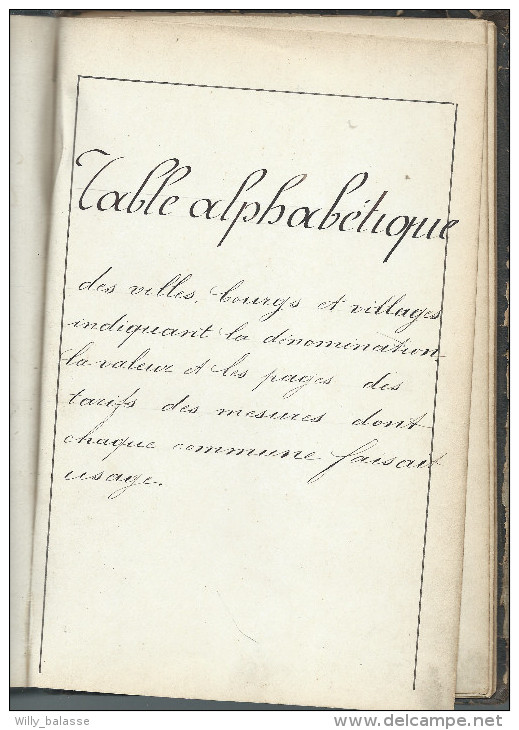 Table alphabétique
des villes, bourgs et villages
indiquant la dénomination
la valeur et les pages des
tarifs des mesures dont
chaque commune faisait
usage.
Willy_balasse
www.delcampe.net